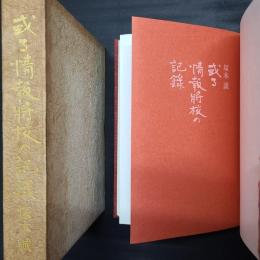 或る情報将校の記録 塚本誠
塚本 誠
或る
情報将校の
記録